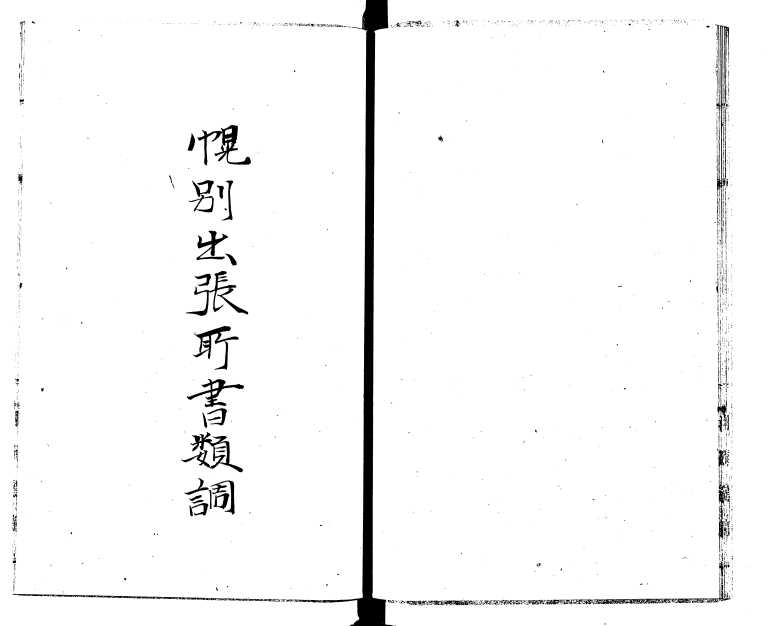 幌別出張所書類調